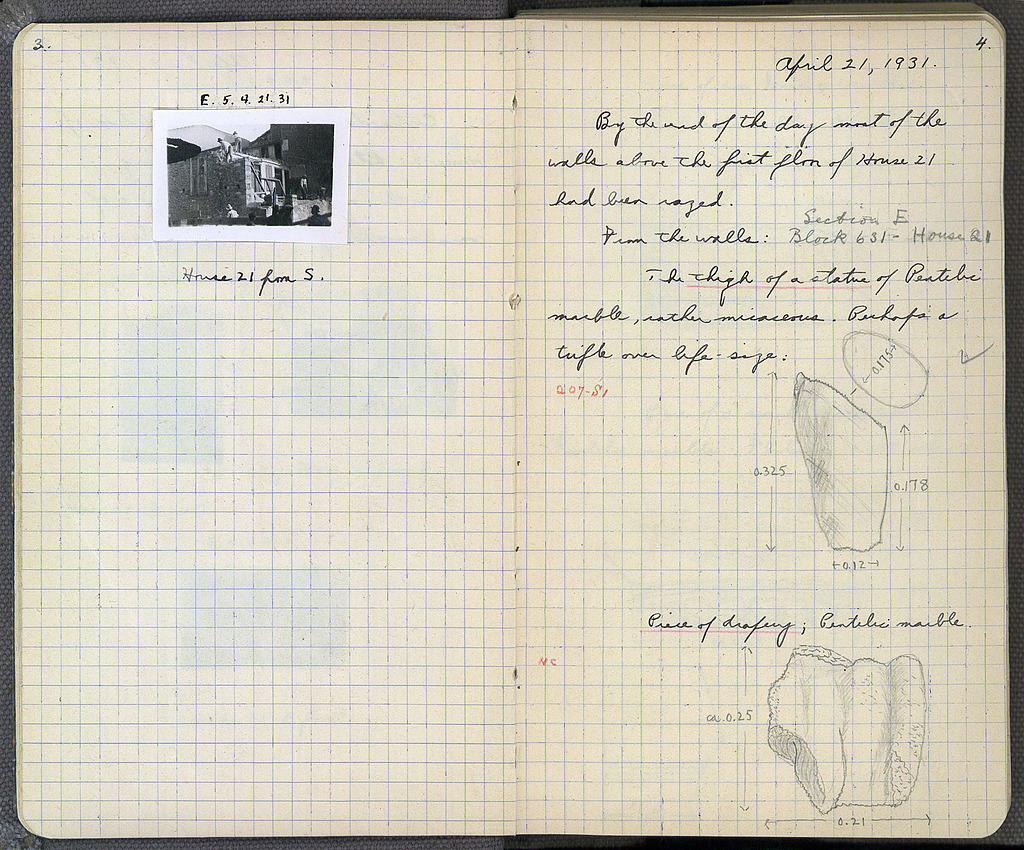 3.
E. 5. 4. 21. 31
House 21 from S.
4.
April 21, 1931.
By the end of the day most of the
walls above the first floor of House 21
had been razed.
Section E
From the walls: Block 631 - House 21
The thigh of a statue of Pentelic
marble, rather micaceous. Perhaps a
trifle over life-size:
0.175
207-S1
0.325
0.178
0.12
Piece of drapery; Pentelic marble.
NC
ca. 0.25
0.21